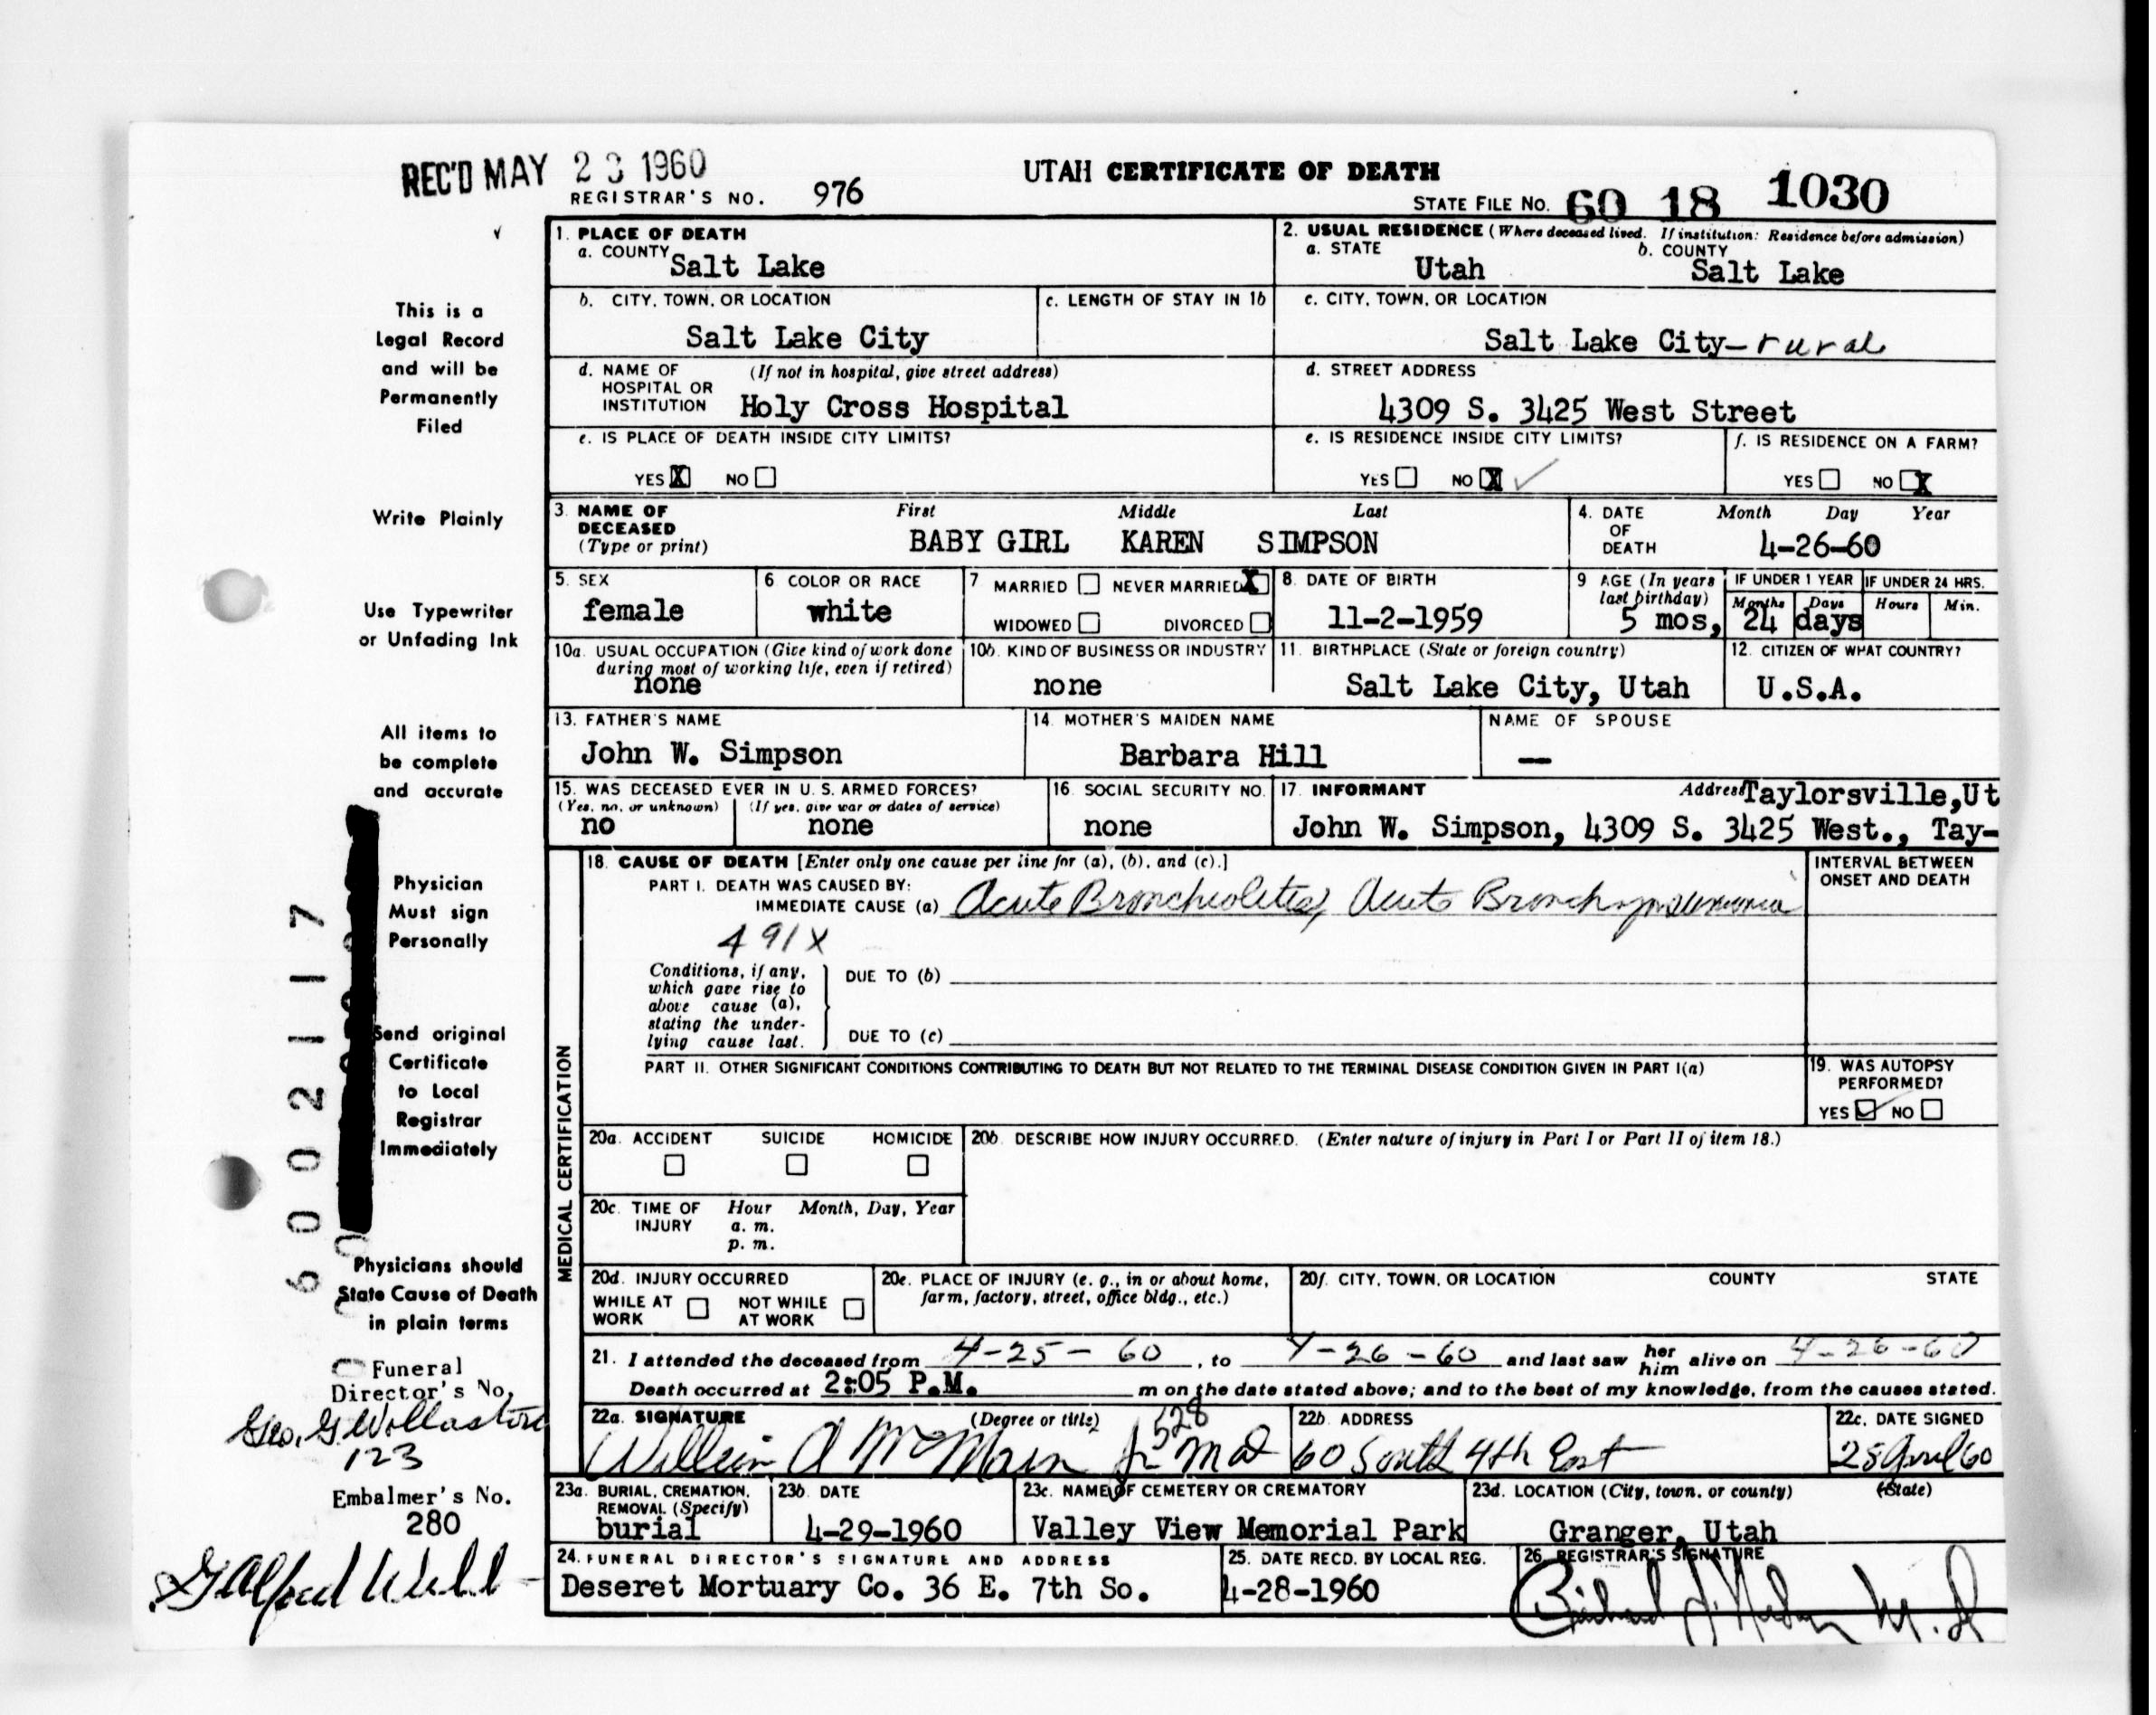 REC'D MAY 23 1960
UTAH CERTIFICATE OF DEATH
REGISTRAR'S NO. 976
STATE FILE NO. 60 18 1030
1. PLACE OF DEATH
a. COUNTY Salt Lake
2. USUAL RESIDENCE (Where deceased lived. If institution: Residence before admission)
a. STATE Utah b. COUNTY Salt Lake
b. CITY, TOWN, OR LOCATION Salt Lake City
c. LENGTH OF STAY IN 1b
c. CITY, TOWN, OR LOCATION
Salt Lake City-rural
d. NAME OF HOSPITAL OR INSTITUTION (If not in hospital, give street address)
Holy Cross Hospital
d. STREET ADDRESS
4309 S. 3425 West Street
e. IS PLACE OF DEATH INSIDE CITY LIMITS?
YES X NO
e. IS RESIDENCE INSIDE CITY LIMITS?
YES NO X
f. IS RESIDENCE ON A FARM?
YES NO X
3. NAME OF DECEASED (Type or print)
First Middle Last
BABY GIRL KAREN SIMPSON
4. DATE OF DEATH Month Day Year
4-26-60
5. SEX
female
6 COLOR OR RACE
white
7 MARRIED NEVER MARRIED X
WIDOWED DIVORCED
8. DATE OF BIRTH
11-2-1959
9 AGE (In years last birthday)
IF UNDER 1 YEAR IF UNDER 24 HRS.
Months Days Hours Min.
5 mos, 24 days
10a. USUAL OCCUPATION (Give kind of work done during most of working life, even if retired)
none
10b. KIND OF BUSINESS OR INDUSTRY
none
11. BIRTHPLACE (State or foreign country)
Salt Lake City, Utah
12. CITIZEN OF WHAT COUNTRY?
U.S.A.
13. FATHER'S NAME
John W. Simpson
14. MOTHER'S MAIDEN NAME
Barbara Hill
NAME OF SPOUSE
—
15. WAS DECEASED EVER IN U. S. ARMED FORCES?
(Yes, no, or unknown) (If yes, give war or dates of service)
no none
16. SOCIAL SECURITY NO.
none
17. INFORMANT Address Taylorsville,Ut
John W. Simpson, 4309 S. 3425 West., Tay-
MEDICAL CERTIFICATION
18. CAUSE OF DEATH [Enter only one cause per line for (a), (b), and (c).]
INTERVAL BETWEEN ONSET AND DEATH
PART I. DEATH WAS CAUSED BY:
IMMEDIATE CAUSE (a) Acute Bronchiolitis, Acute Bronchopneumonia
491X
Conditions, if any, which gave rise to above cause (a), stating the underlying cause last.
DUE TO (b)
DUE TO (c)
PART II. OTHER SIGNIFICANT CONDITIONS CONTRIBUTING TO DEATH BUT NOT RELATED TO THE TERMINAL DISEASE CONDITION GIVEN IN PART I(a)
19. WAS AUTOPSY PERFORMED?
YES ✓ NO
20a. ACCIDENT SUICIDE HOMICIDE
20b. DESCRIBE HOW INJURY OCCURRED. (Enter nature of injury in Part I or Part II of item 18.)
20c. TIME OF INJURY Hour Month, Day, Year
a. m.
p. m.
20d. INJURY OCCURRED
WHILE AT WORK NOT WHILE AT WORK
20e. PLACE OF INJURY (e. g., in or about home, farm, factory, street, office bldg., etc.)
20f. CITY, TOWN, OR LOCATION COUNTY STATE
21. I attended the deceased from 4-25-60, to 4-26-60 and last saw her him alive on 4-26-60
Death occurred at 2:05 P.M. m on the date stated above; and to the best of my knowledge, from the causes stated.
22a. SIGNATURE (Degree or title) 528
William A McMain Jr MD
22b. ADDRESS
60 South 4th East
22c. DATE SIGNED
28 April 60
23a. BURIAL, CREMATION, REMOVAL (Specify)
burial
23b. DATE
4-29-1960
23c. NAME OF CEMETERY OR CREMATORY
Valley View Memorial Park
23d. LOCATION (City, town, or county) (State)
Granger, Utah
24. FUNERAL DIRECTOR'S SIGNATURE AND ADDRESS
Deseret Mortuary Co. 36 E. 7th So.
25. DATE RECD. BY LOCAL REG.
4-28-1960
26. REGISTRAR'S SIGNATURE
This is a
Legal Record
and will be
Permanently
Filed
Write Plainly
Use Typewriter
or Unfading Ink
All items to
be complete
and accurate
Physician
Must sign
Personally
Send original
Certificate
to Local
Registrar
Immediately
Physicians should
State Cause of Death
in plain terms
6002117
Funeral
Director's No.
Geo. G. Wollaston
123
Embalmer's No.
280